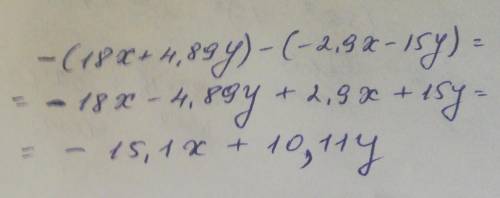 -(18x+4,89y)-(-2,9x-15y)=
= -18x-4,89y+2,9x+15y=
= -15,1x+10,11y